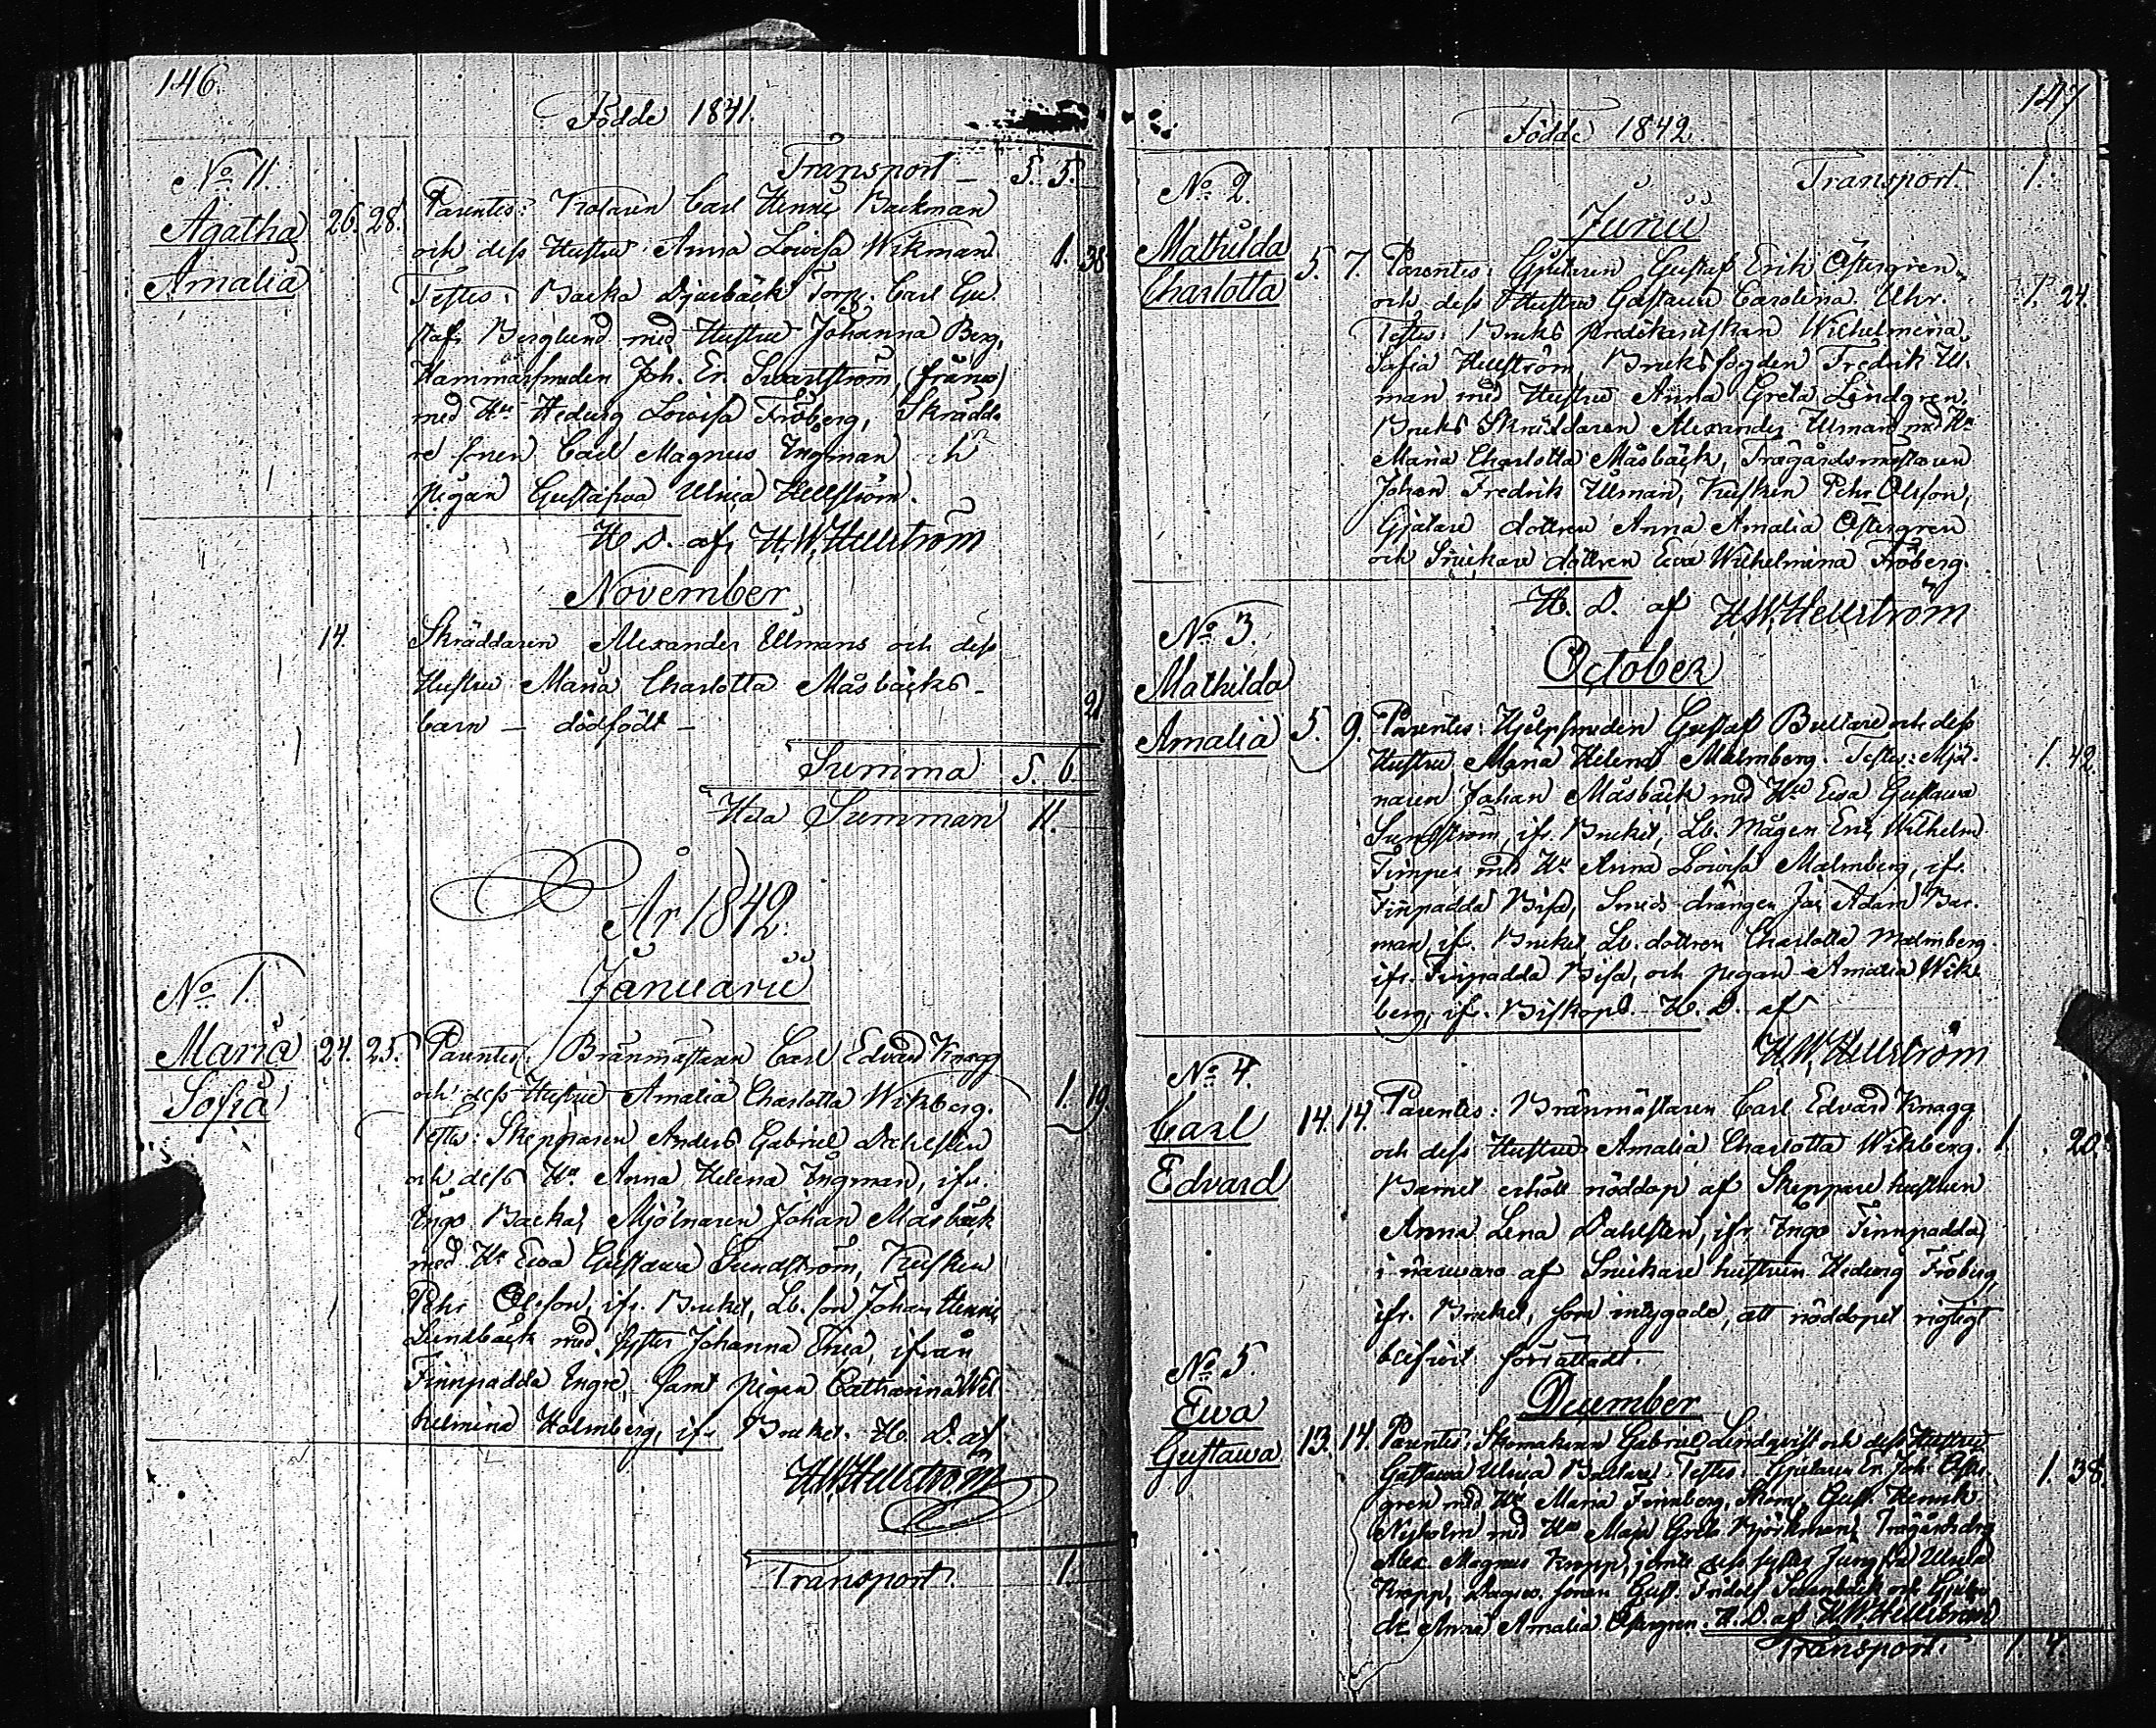 146.
Födde 1841.
Transport – 5. 5.
No 11.
Agatha
Amalia
26. 28.
Parentes: Kolaren Carl Henric Backman
och dess Hustru Anna Lowisa Wikman.
1. 38
Testes: Backa Djusbäck Torp. Carl Gu-
staf Berglund med Hustru Johanna Berg,
Hammarsmeden Joh. Er. Swartström, (frånw)
med Hu Hedwig Lowisa Fröberg, Skradda-
re sonen Carl Magnus Ingman och
pigan Gustafwa Ulrica Hellström.
H. D. af H. W. Hellström
November
14. Skräddaren Alexander Ulmans och dess
Hustru Maria Charlotta Måsbäcks
21
barn – dödfödt –
Summa 5. 6
Hela Summan 11.
År 1842.
Januarii
No 1.
Maria
Sofia
24. 25.
Parentes: Bränmästaren Carl Edvard Knagg
och dess Hustru Amalia Charlotta Wikberg.
1. 19.
Testes: Skepparen Anders Gabriel Dahlsten
och dess Hu Anna Helena Ingman, ifr.
Ingo Backa, Mjölnaren Johan Måsbäck
med Hu Ewa Gustawa Sundström, Kusken
Pehr Olsson, ifr. Bruket, Lb. son Johan Henric
Lundbäck med syster Johanna Ulrica, ifrån
Finnpadda Ingre, samt pigan Catharina Wil-
helmina Holmberg, ifr. Bruket. H. D. af
H. W. Hellström
Transport. 1.
147
Födde 1842.
Transport. 1.
No 2.
Mathilda
Charlotta
Junii
5. 7. Parentes: Gjutaren Gustaf Erik Östergren
och dess Hustru Gustawa Carolina Uhr.
1. 24.
Testes: Bruks predikantskan Wilhelmina
Sofia Hellström, Bruksfogden Fredrik Ul-
man med Hustru Anna Greta Lindgren,
Bruks Skräddaren Alexander Ulman med Hu
Maria Charlotta Måsbäck, Trägårdsmästaren
Johan Fredrik Ulman, Kusken Pehr Olsson,
Gjutare dottren Anna Amalia Östergren
och Snickare dottren Ewa Wilhelmina Fröberg.
H. D. af H. W. Hellström
No 3.
Mathilda
Amalia
October
5. 9. Parentes: Hjelpsmeden Gustaf Bullare och dess
Hustru Maria Helena Malmberg. Testes: Mjöl-
1. 42.
naren Johan Måsbäck med Hu Ewa Gustawa
Sundström, ifr. Bruket, Lb. mågen Eric Wilhelm
Timper med Hu Anna Lowisa Malmberg, ifr.
Finpadda Bisa, Smeds drängen Jac Adam Bar-
man, ifr. Bruket, Lb. dottren Charlotta Malmberg
ifr. Finpadda Bisa, och pigan Amalia Wik-
berg, ifr. Biskops. H. D. af
H. W. Hellström
No 4.
Carl
Edvard
14. 14. Parentes: Bränmästaren Carl Edvard Knagg
och dess Hustru Amalia Charlotta Wikberg.
1. 20.
Barnet erhöll nöddop af Skeppare hustrun
Anna Lena Dahlsten, ifr. Ingo Finnpadda,
i närwaro af Snickare hustrun Hedwig Fröberg,
ifr. Bruket, som intygade, att nöddopet rigtigt
blifwit förrättadt.
No 5.
Ewa
Gustawa
December
13. 14. Parentes: Skomakaren Gabriel Lindqvist och dess Hustru
Gustawa Ulrica Bullare. Testes: Gjutaren Er. Joh. Öster-
1. 38.
gren med Hu Maria Finnberg, Skom. Gust. Henrik
Nyholm med Hu Maja Greta Björkman, Trägårdsdrg
Alex. Magnus Kropp, jemte dess syster Jungfru Ulrica
Kropp, sonen Gust. Fridolf och Gjutare
dr. Anna Amalia Östergren. H. D. af H. W. Hellström
Transport. 1. 4.